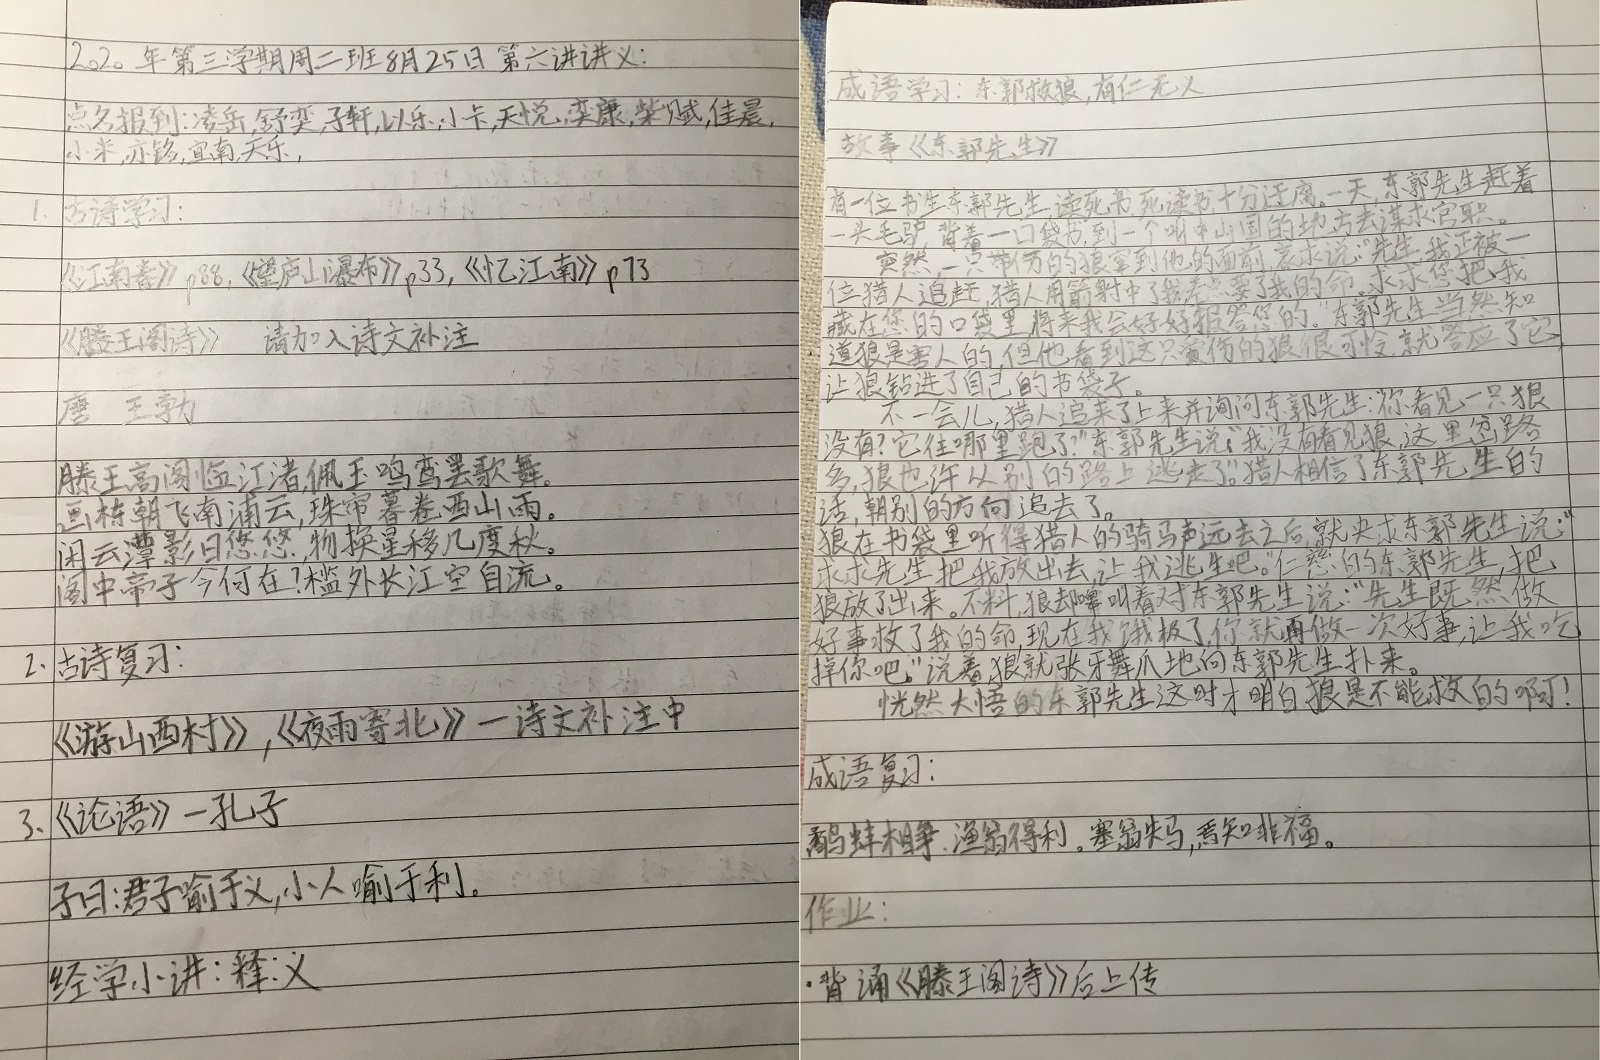 2020年第三学期周二班8月25日第六讲讲义:
点名报到:凌岳,舒奕,子轩,以乐,小卡,天悦,奕康,柴斌,佳晨,
小米,亦铭,宜南,天乐,
1. 古诗学习:
《江南春》p88,《望庐山瀑布》p33,《忆江南》p73
《滕王阁诗》 请加入诗文补注
唐 王勃
滕王高阁临江渚,佩玉鸣鸾罢歌舞。
画栋朝飞南浦云,珠帘暮卷西山雨。
闲云潭影日悠悠,物换星移几度秋。
阁中帝子今何在?槛外长江空自流。
2. 古诗复习:
《游山西村》,《夜雨寄北》—诗文补注中
3. 《论语》—孔子
子曰:君子喻于义,小人喻于利。
经学小讲:释:义
成语学习:东郭救狼,有仁无义
故事《东郭先生》
有一位书生东郭先生,读死书死读书,十分迂腐。一天,东郭先生赶着
一头毛驴,背着一口袋书,到一个叫中山国的地方去谋求官职。
突然,一只带伤的狼窜到他的面前,哀求说:“先生,我正被一
位猎人追赶,猎人用箭射中了我,差点要了我的命。求求您把我
藏在您的口袋里,将来我会好好报答您的。”东郭先生当然知
道狼是害人的,但他看到这只受伤的狼很可怜,就答应了它,
让狼钻进了自己的书袋子。
不一会儿,猎人追来了上来并询问东郭先生:“你看见一只狼
没有?它往哪里跑了?”东郭先生说:“我没有看见狼,这里岔路
多,狼也许从别的路上逃走了。”猎人相信了东郭先生的
话,朝别的方向追去了。
狼在书袋里听得猎人的骑马声远去之后,就央求东郭先生说:“
求求先生把我放出去,让我逃生吧。”仁慈的东郭先生,把
狼放了出来。不料,狼却嗥叫着对东郭先生说:“先生既然做
好事救了我的命,现在我饿极了,你就再做一次好事,让我吃
掉你吧。”说着,狼就张牙舞爪地向东郭先生扑来。
恍然大悟的东郭先生这时才明白狼是不能救的啊!
成语复习:
鹬蚌相争,渔翁得利。塞翁失马,焉知非福。
作业:
·背诵《滕王阁诗》后上传